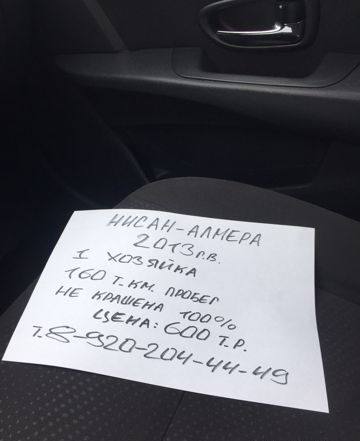 НИСАН-АЛМЕРА
2013 г.в.
1 ХОЗЯЙКА
160 Т.КМ. ПРОБЕГ
НЕ КРАШЕНА 100%
ЦЕНА: 600 Т.Р.
Т.8-920-204-44-49